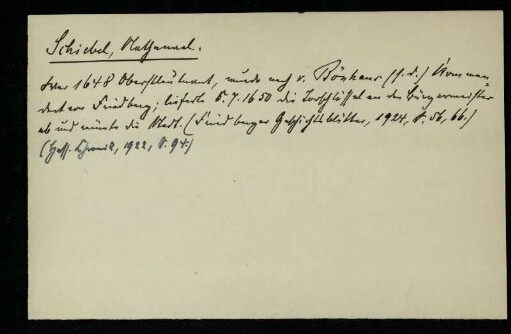 Schiebel, Nathanael.
War 1648 Oberstleutnant, wurde nach v. Bönhaus (s. d.) Komman-
dant von Friedberg; lieferte 5.7.1650 die Torschlüssel an den Bürgermeister
ab und räumte die Stadt. (Friedberger Geschichtsblätter, 1924, S. 56, 66.)
(Hess. Chronik, 1922, S. 94.)